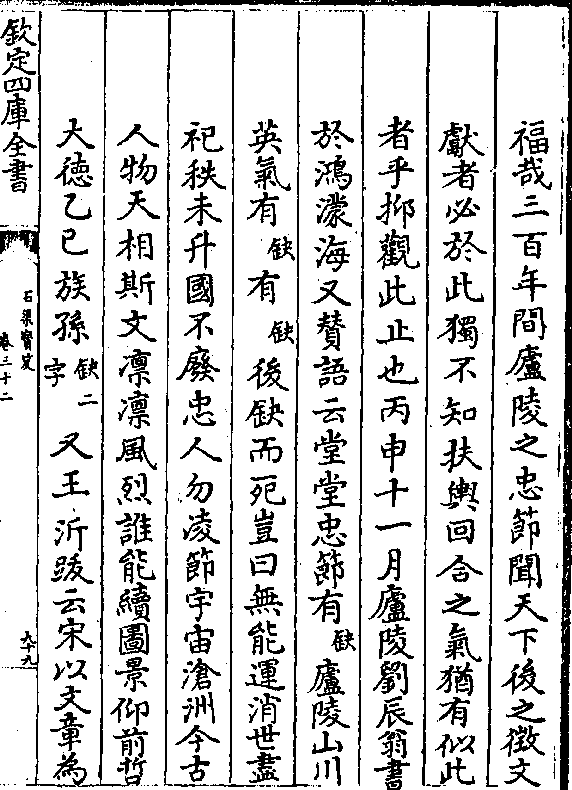 福哉三百年間廬陵之忠節聞天下後之徵文
獻者必於此獨不知扶輿回合之氣猶有似此
者乎抑觀此止也丙申十一月廬陵劉辰翁書
於鴻濛海又賛語云堂堂忠節有缺廬陵山川
英氣有缺有缺後缺而死豈曰無能運消世盡
祀秩未升國不廢忠人勿凌節宇宙滄洲今古
人物天相斯文凛凛風烈誰能續圖景仰前哲
大徳乙巳族孫缺二字又王沂䟦云宋以文章為
欽定四庫全書
石渠寳笈
卷三十二
九十九